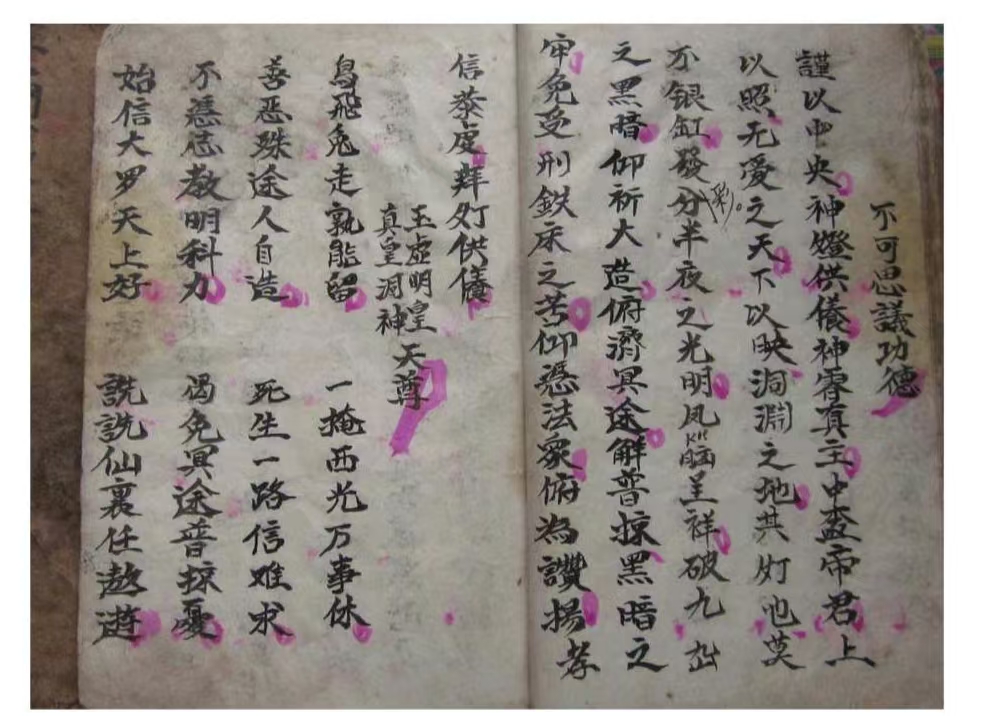 不可思議功德
謹以中央神燈供儀神霄真主中帝君上
以照无爱之天下以映洞淵之地其灯也莫
不银缸發分半夜之光明凤脑呈祥破九
彩
之黑暗仰祈大造俯濟冥途解普掠黑暗之
牢免受刑鉄床之苦仰憑法衆俯為讚揚孝
信恭虔拜灯供儀
玉虚明皇
真皇洞神
天尊
鳥飛兔走孰能留 一掩西光万事休
善恶殊途人自造 死生一路信难求
不教明科力 曷免冥途普掠憂
始信大罗天上好 説説仙裏任遨遊